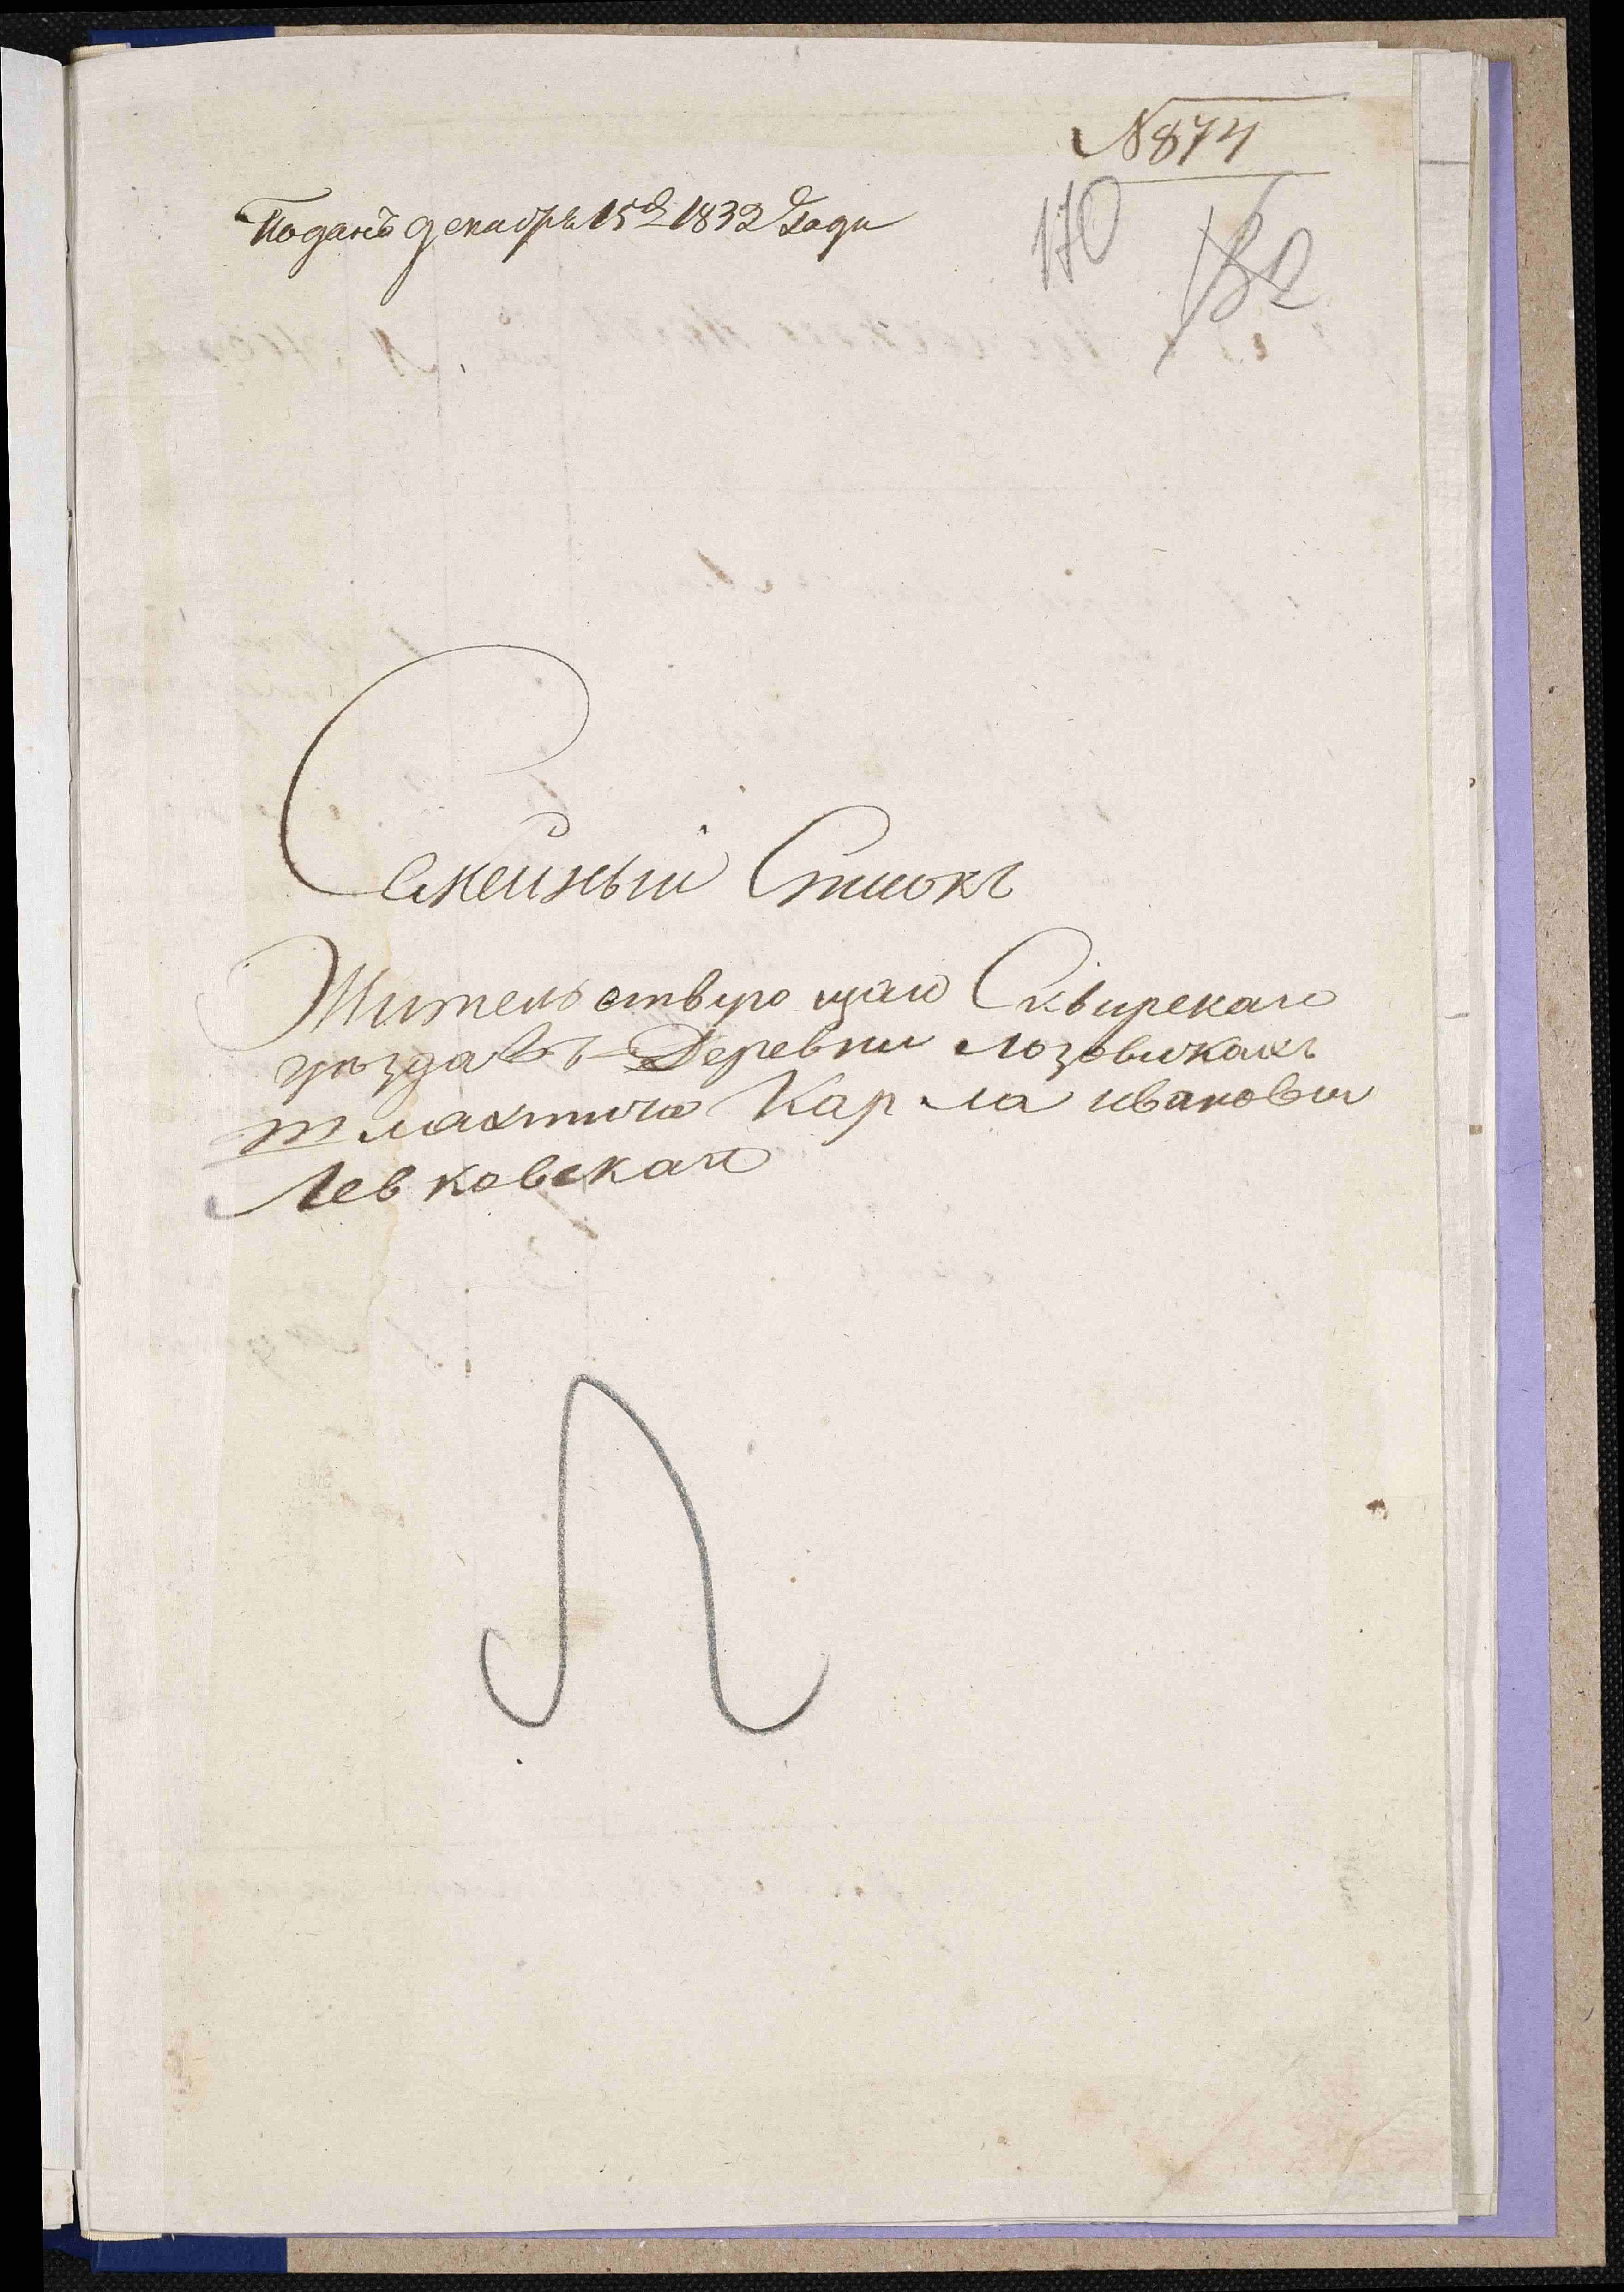 N 874
Поданъ декабря 15го 1832 Года
170
182
Семейный Списокъ
Жительствующаго Сквирскаго
уѣзда въ Деревни Лозовикахъ
шляхтича Карла ивановы
Левковскаго
Л